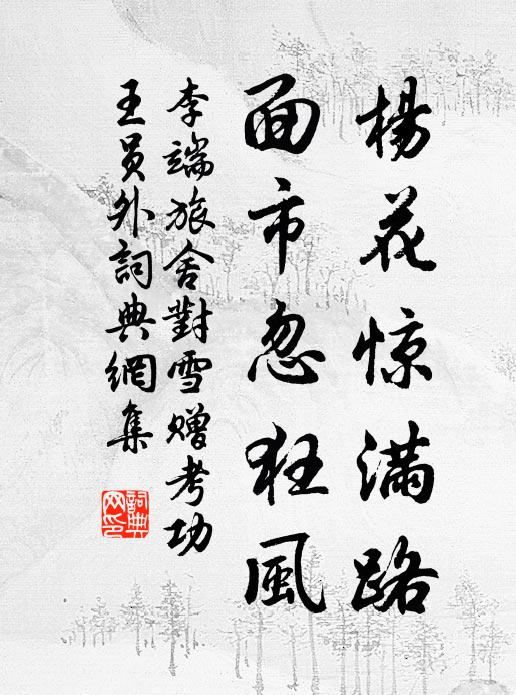 楊花惊满路
面市忽狂風
李端旅舍對雪贈考功
王員外詞典網集
詞典网印